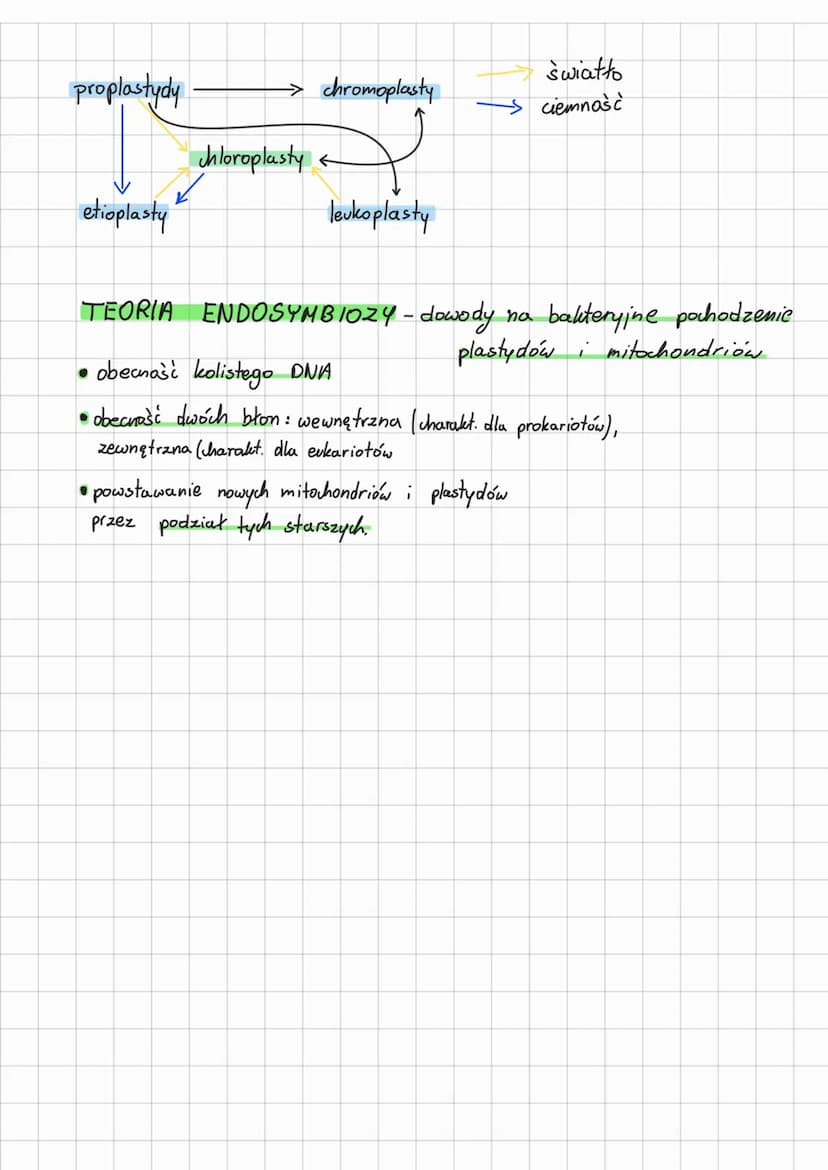 proplastydy chromoplasty światło
ciemność
chloroplasty
etioplasty leukoplasty
TEORIA ENDOSYMBIOZY - dowody na bakteryjne pochodzenie
plastydów i mitochondriów
• obecność kolistego DNA
• obecność dwóch błon: wewnętrzna (charakt. dla prokariotów),
zewnętrzna (charakt. dla eukariotów
• powstawanie nowych mitochondriów i plastydów
przez podział tych starszych.